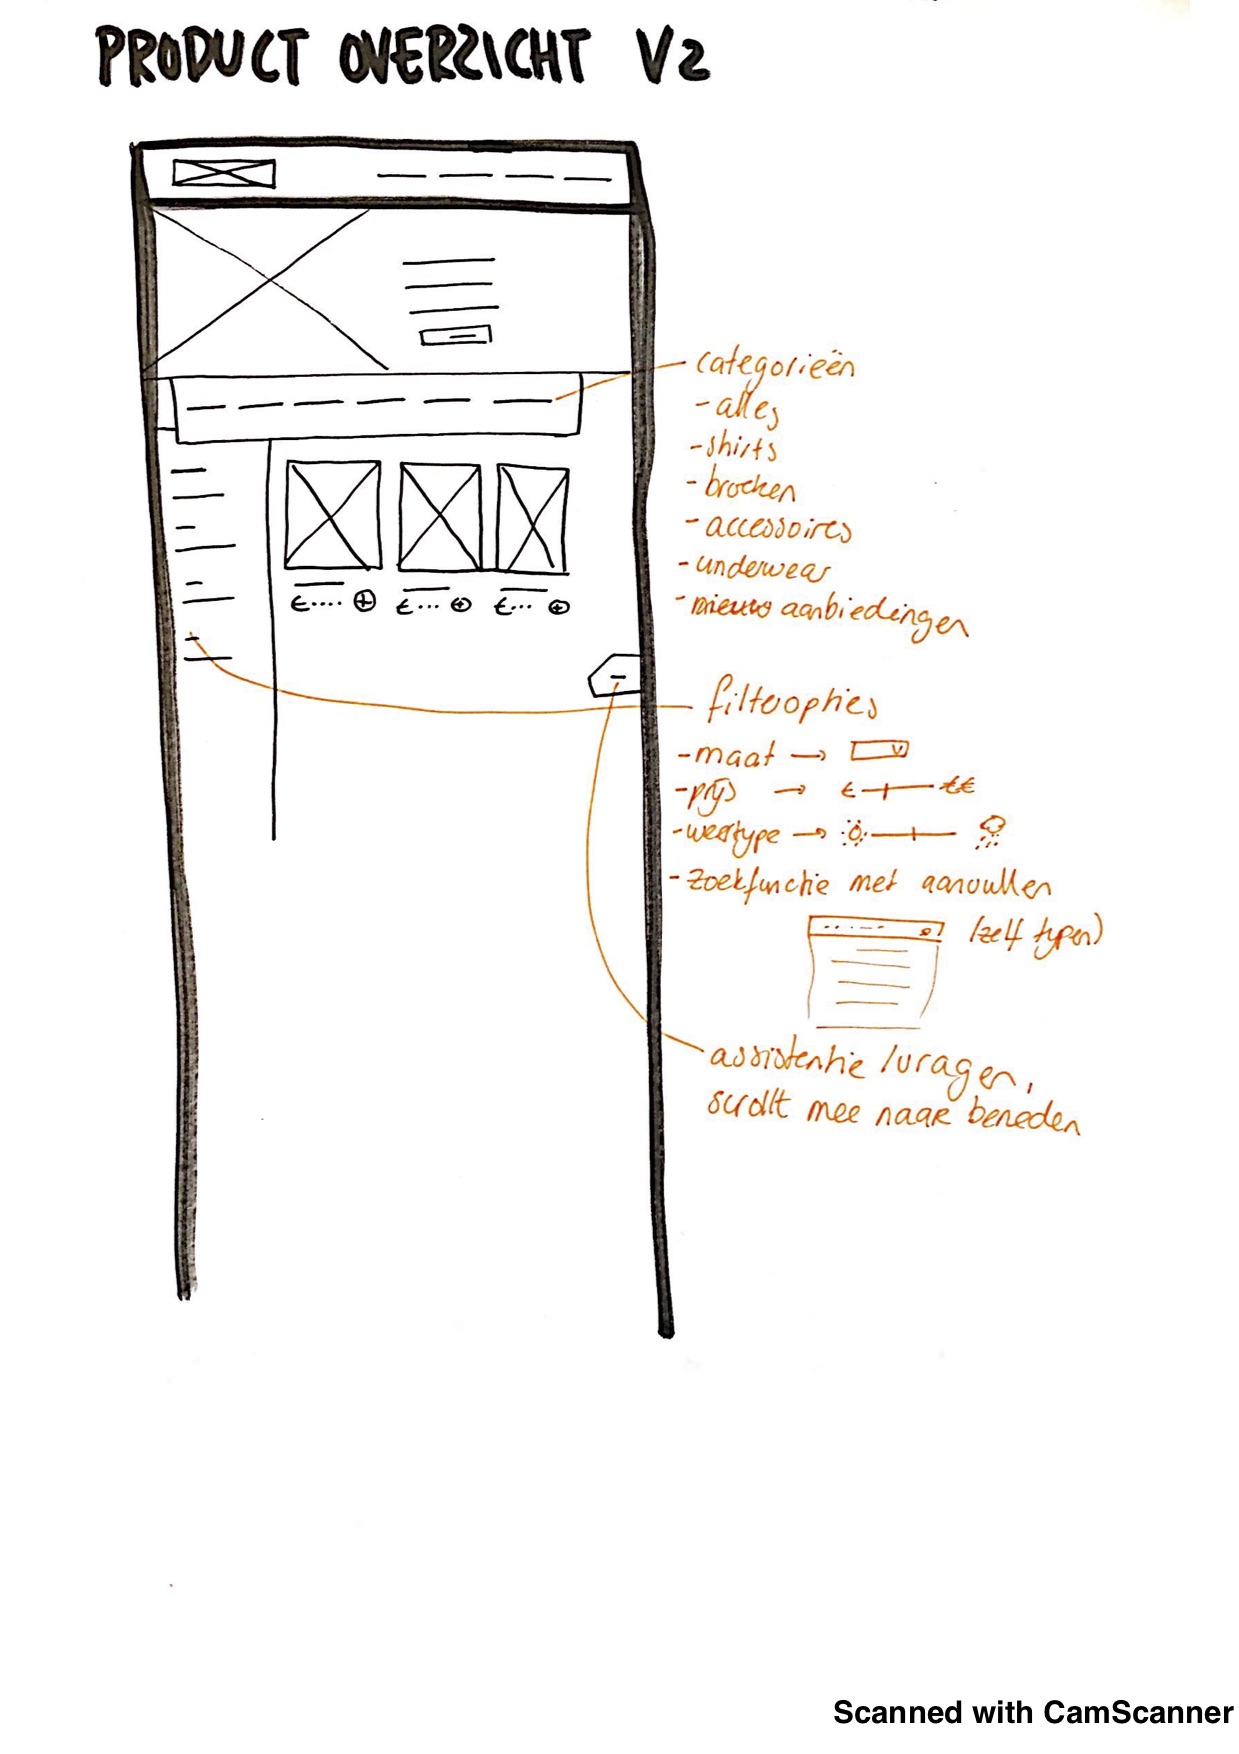 PRODUCT OVERZICHT V2
categorieën
- alles
- shirts
- broeken
- accessoires
- underwear
- nieuw aanbiedingen
filteropties
- maat →
- prijs → € €€
- weertype →
- zoekfunctie met aanvullen
(zelf typen)
assistentie / vragen,
scrollt mee naar beneden
€.... +
€... +
€... +
Scanned with CamScanner